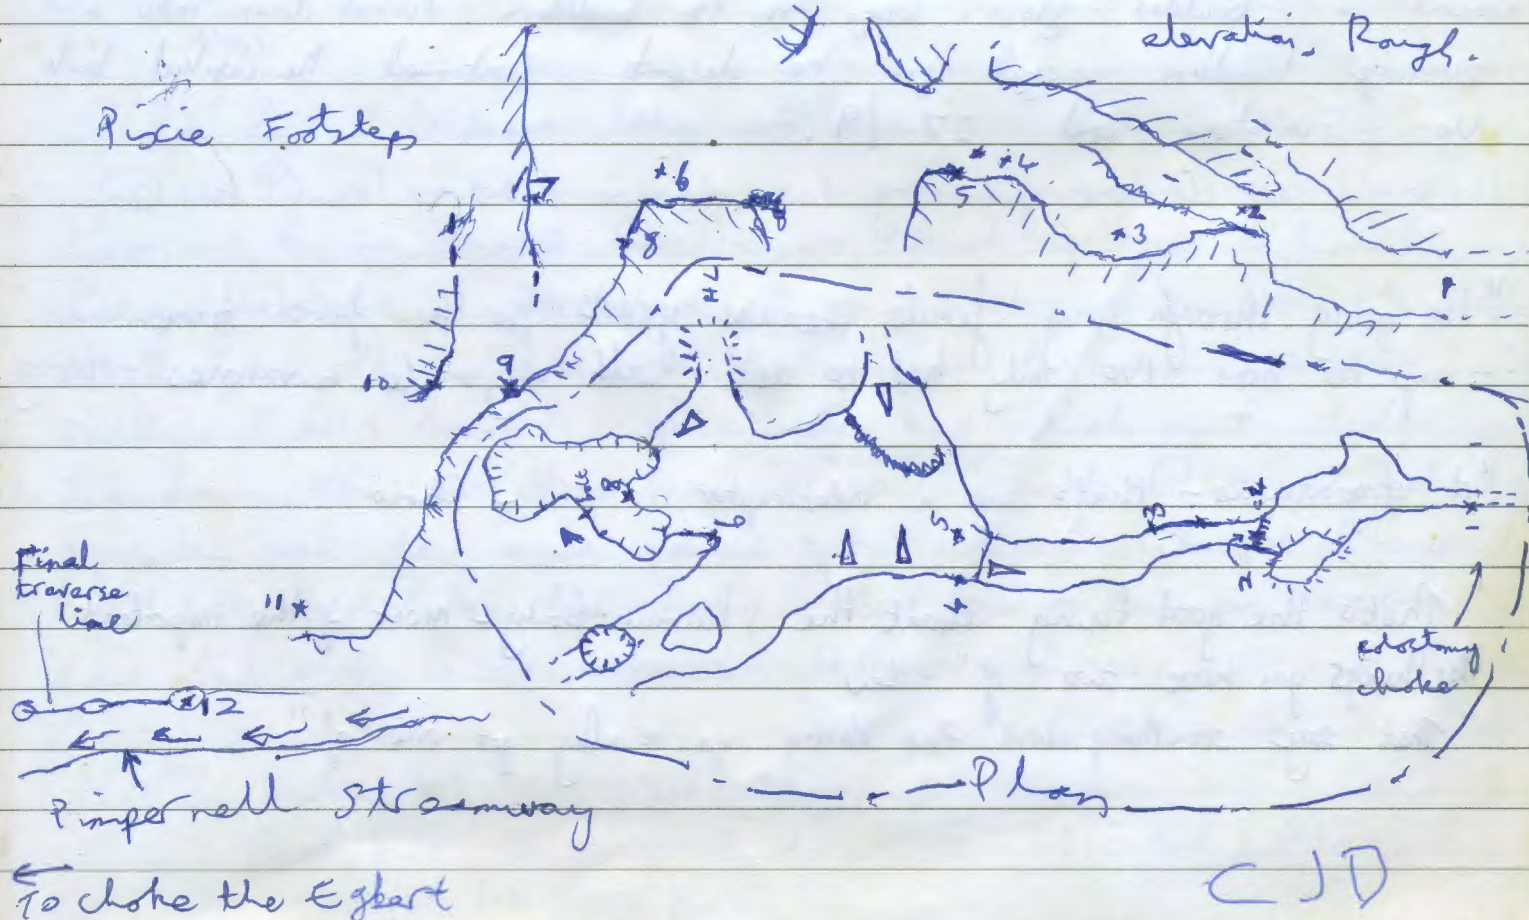 elevation. Rough.
Pixie Footsteps
7
6
4
5
2
3
8
1
HL
9
10
hole
8
6
5
3
2
4
Final
traverse
line
11
colostomy
choke
12
Pimpernell Streamway
Plan
To choke the Egbert
CJD